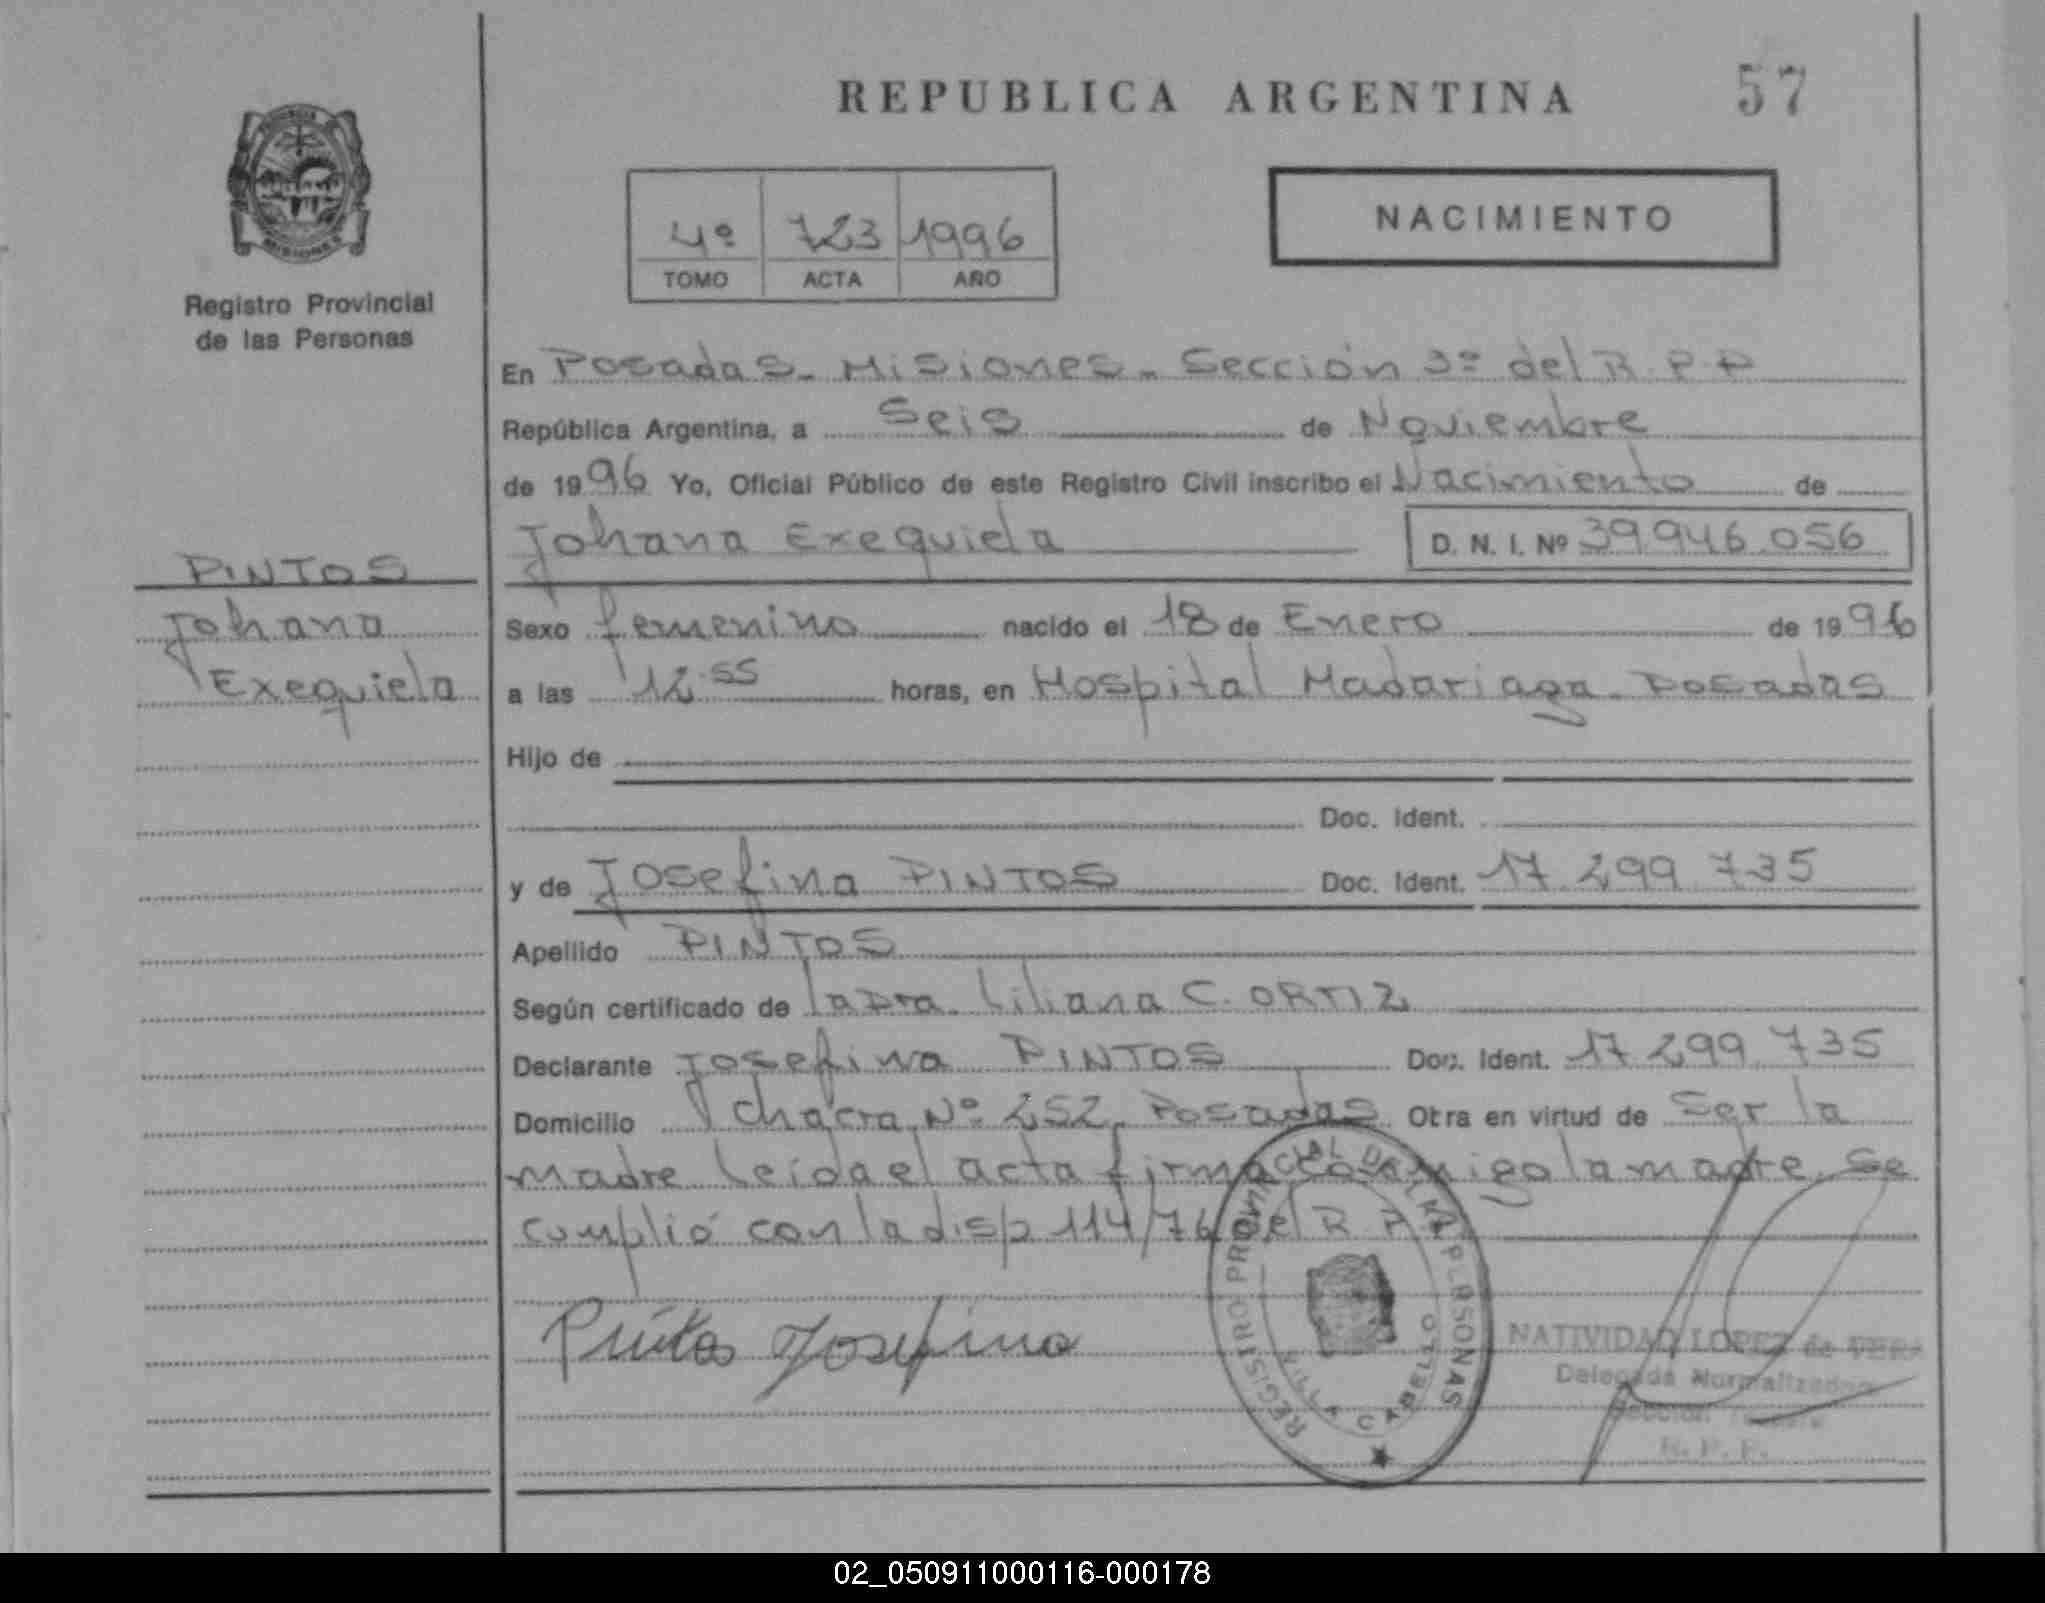 REPUBLICA ARGENTINA
57
4º 723 1996
TOMO ACTA AÑO
NACIMIENTO
Registro Provincial
de las Personas
En Posadas - Misiones - Sección 3º del R.P.P
República Argentina, a Seis de Noviembre
de 1996 Yo, Oficial Público de este Registro Civil inscribo el Nacimiento de
Johana Exequiela D. N. I. Nº 39.946.056
PINTOS
Johana
Exequiela
Sexo femenino nacido el 18 de Enero de 1996
a las 12.55 horas, en Hospital Madariaga - Posadas
Hijo de
Doc. Ident.
y de Josefina PINTOS Doc. Ident. 17.299.735
Apellido PINTOS
Según certificado de la Dra. Liliana C. ORTIZ
Declarante Josefina PINTOS Doc. Ident. 17.299.735
Domicilio Chacra Nº 252. Posadas Otra en virtud de Ser la
madre Leida el acta firma conmigo la madre. Se
cumplió con la disp 114/76 del R.P.P.
Pintos Josefina
REGISTRO PROVINCIAL DE LAS PERSONAS
VILLA CABELLO
NATIVIDAD LOPEZ de VERA
Delegada Normalizadora
Sección Tercera
R. P. P.
02_050911000116-000178